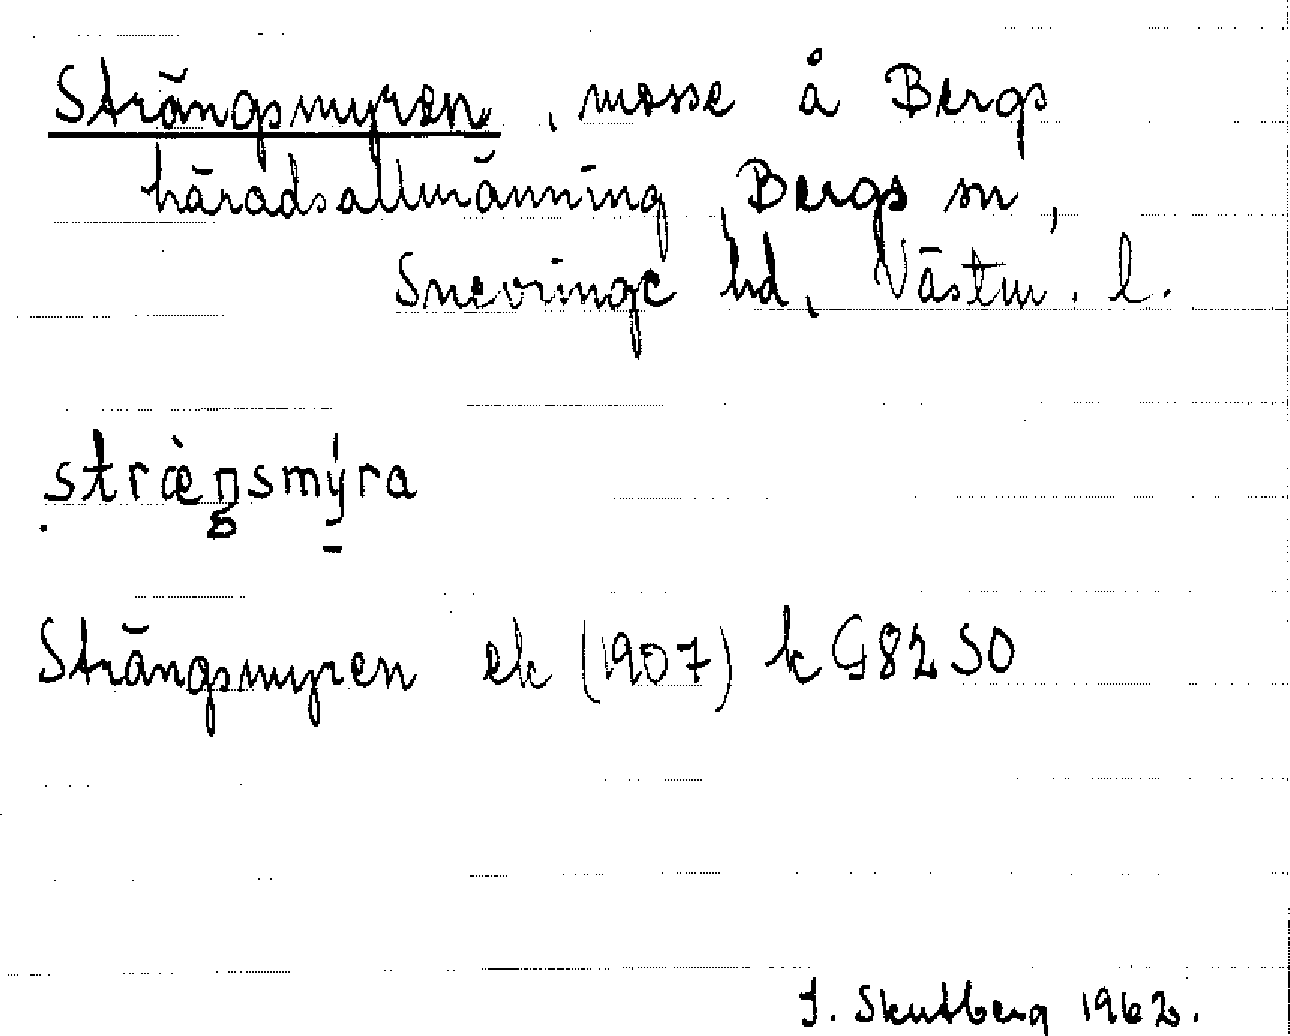 Strängsmyren, mosse å Bergs
häradsallmänning, Bergs sn,
Snevringe hd, Västm. l.
stræ̀ŋsmýra
Strängsmyren ek (1907) k G82 SO
J. Skutberg 1962.